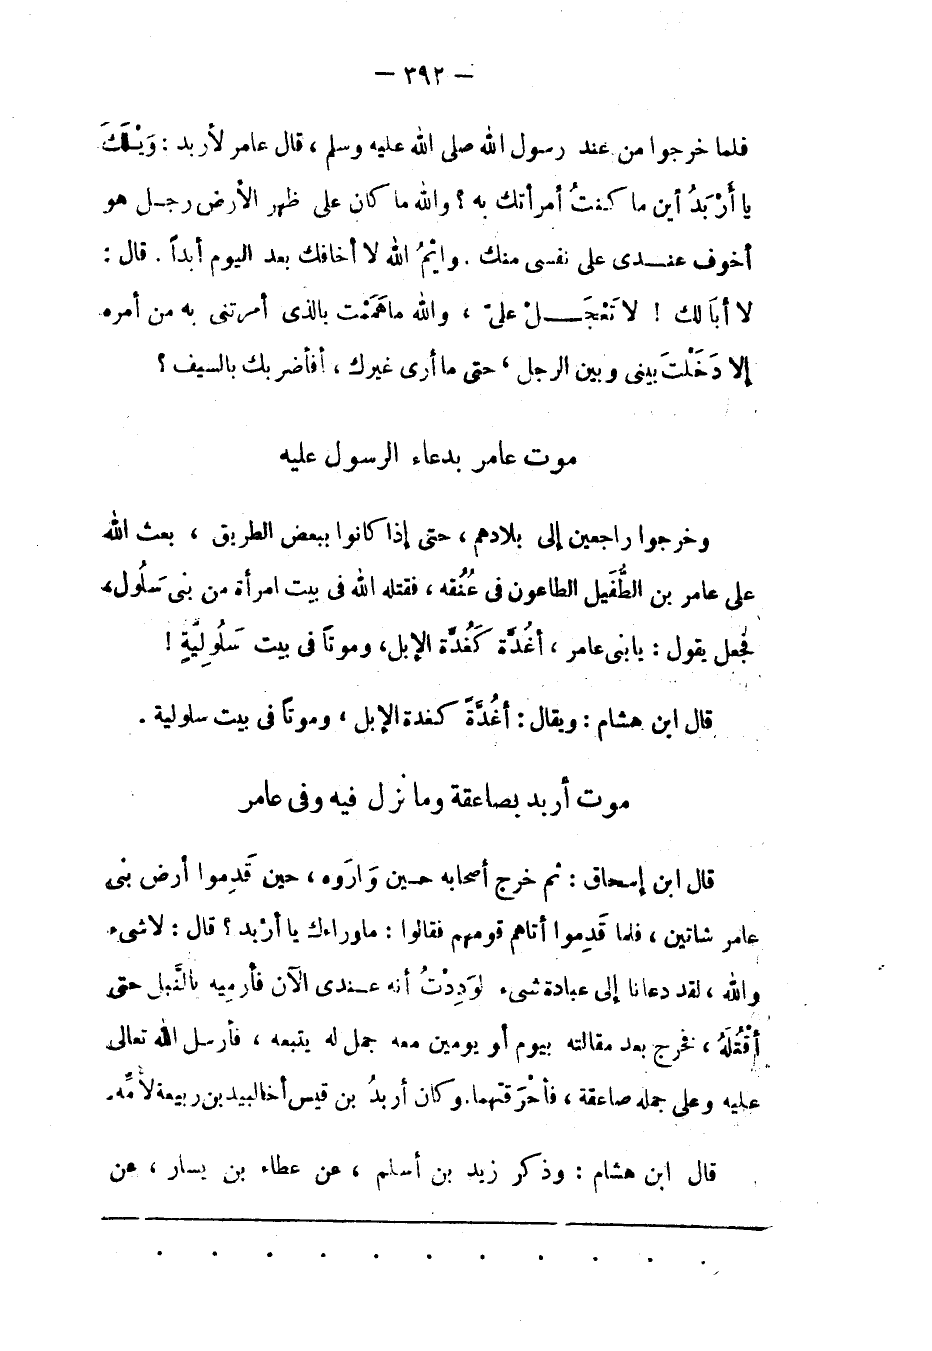 — ٣٩٢ —
فلما خرجوا من عند رسول الله صلى الله عليه وسلم ، قال عامر لأربد : وَيْلَكَ
يا أَرْبَدُ أين ما كنتُ أمرأتك به ؟ والله ما كان على ظهر الأرض رجل هو
أخوف عندى على نفسى منك . وايْمُ الله لا أخافك بعد اليوم أبداً . قال :
لا أبَا لك ! لا تَعْجَلْ علىّ ، والله ما هَمَمْت بالذى أمرتنى به من أمره
إلا دَخَلْتَ بينى وبين الرجل ، حتى ما أرى غيرك ، أفأضربك بالسيف ؟
موت عامر بدعاء الرسول عليه
وخرجوا راجعين إلى بلادهم ، حتى إذا كانوا ببعض الطريق ، بعث الله
على عامر بن الطُّفَيل الطاعون فى عُنُقه ، فقتله الله فى بيت امرأة من بنى سَلُول،
فجعل يقول : يابنى عامر ، أغُدَّة كَغُدَّة الإبل، وموتاً فى بيت سَلُولِيَّةٍ !
قال ابن هشام : ويقال : أغُدَّةً كغدة الإبل ، وموتاً فى بيت سلولية .
موت أربد بصاعقة وما نزل فيه وفى عامر
قال ابن إسحاق : ثم خرج أصحابه حين وَارَوه ، حين قَدِموا أرض بنى
عامر شاتين ، فلما قَدِموا أتاهم قومهم فقالوا : ما وراءك يا أرْبد ؟ قال : لا شىء
والله ، لقد دعانا إلى عبادة شىء لوَدِدْتُ أنه عندى الآن فأرميه بالنَّبل حتى
أقْتُلَهُ ، فخرج بعد مقالته بيوم أو يومين معه جمل له يتبعه ، فأرسل الله تعالى
عليه وعلى جمله صاعقة ، فأحْرَقتهما. وكان أربدُ بن قيس أخا لبيد بن ربيعة لأمِّه.
قال ابن هشام : وذكر زيد بن أسلم ، عن عطاء بن يسار ، عن
. . . . . . . . . . .